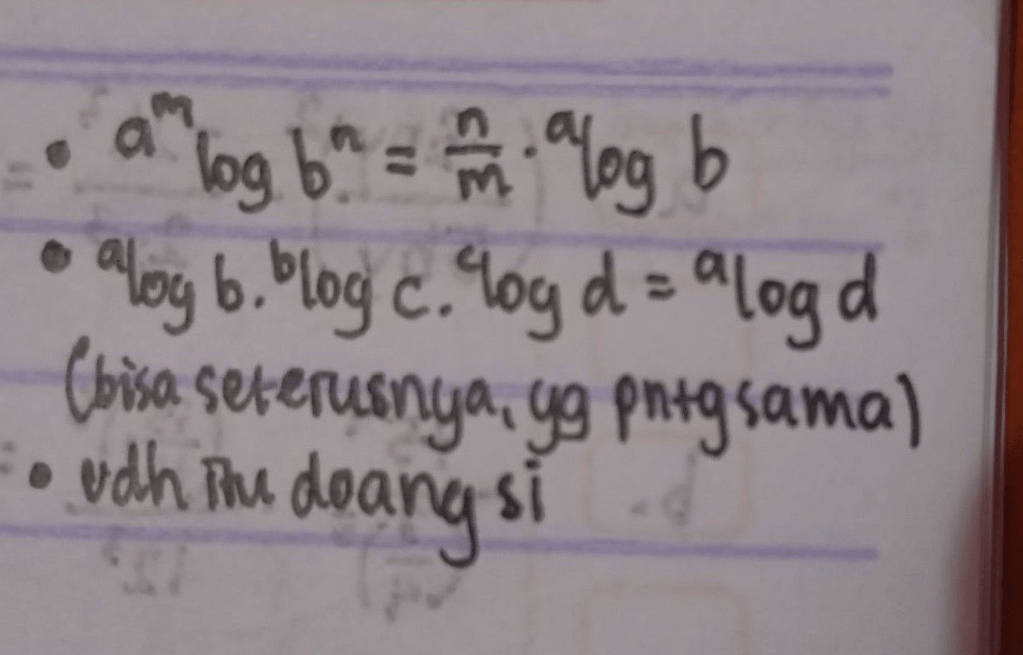 • a^m log b^n = n/m . ᵃlog b
• ᵃlog b . ᵇlog c . ᶜlog d = ᵃlog d
(bisa seterusnya, yg pntg sama)
• udh itu doang si